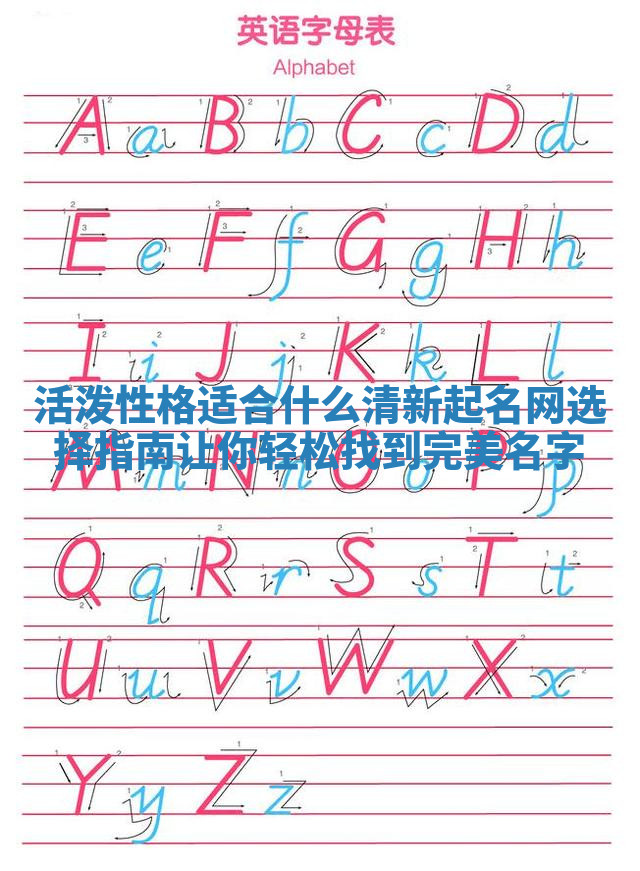 英语字母表
Alphabet
A a B b C c D d
E e F f G g H h
I i J j K k L l
活泼性格适合什么清新起名网选
择指南让你轻松找到完美名字
M m N n O o P p
Q q R r S s T t
U u V v W w X x
Y y Z z